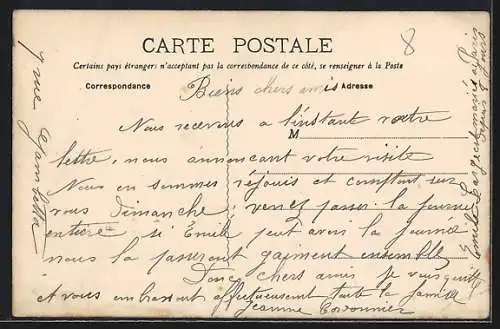 CARTE POSTALE
8
Certains pays étrangers n'acceptant pas la correspondance de ce côté, se renseigner à la Poste
Correspondance
Adresse
Biens chers amis
Nous recevons a l'instant votre
M
lettre, nous annoncant votre visite
Nous en sommes réjouis et comptont sur
vous Dimanche, venez passer la journée
entière si Emile peut avoir la journée
nous la passeront gaiment ensemble
Donc chers amis je vous quitte
et vous embrassent affectueusement toute la famille
Jeanne
7 rue Gambetta